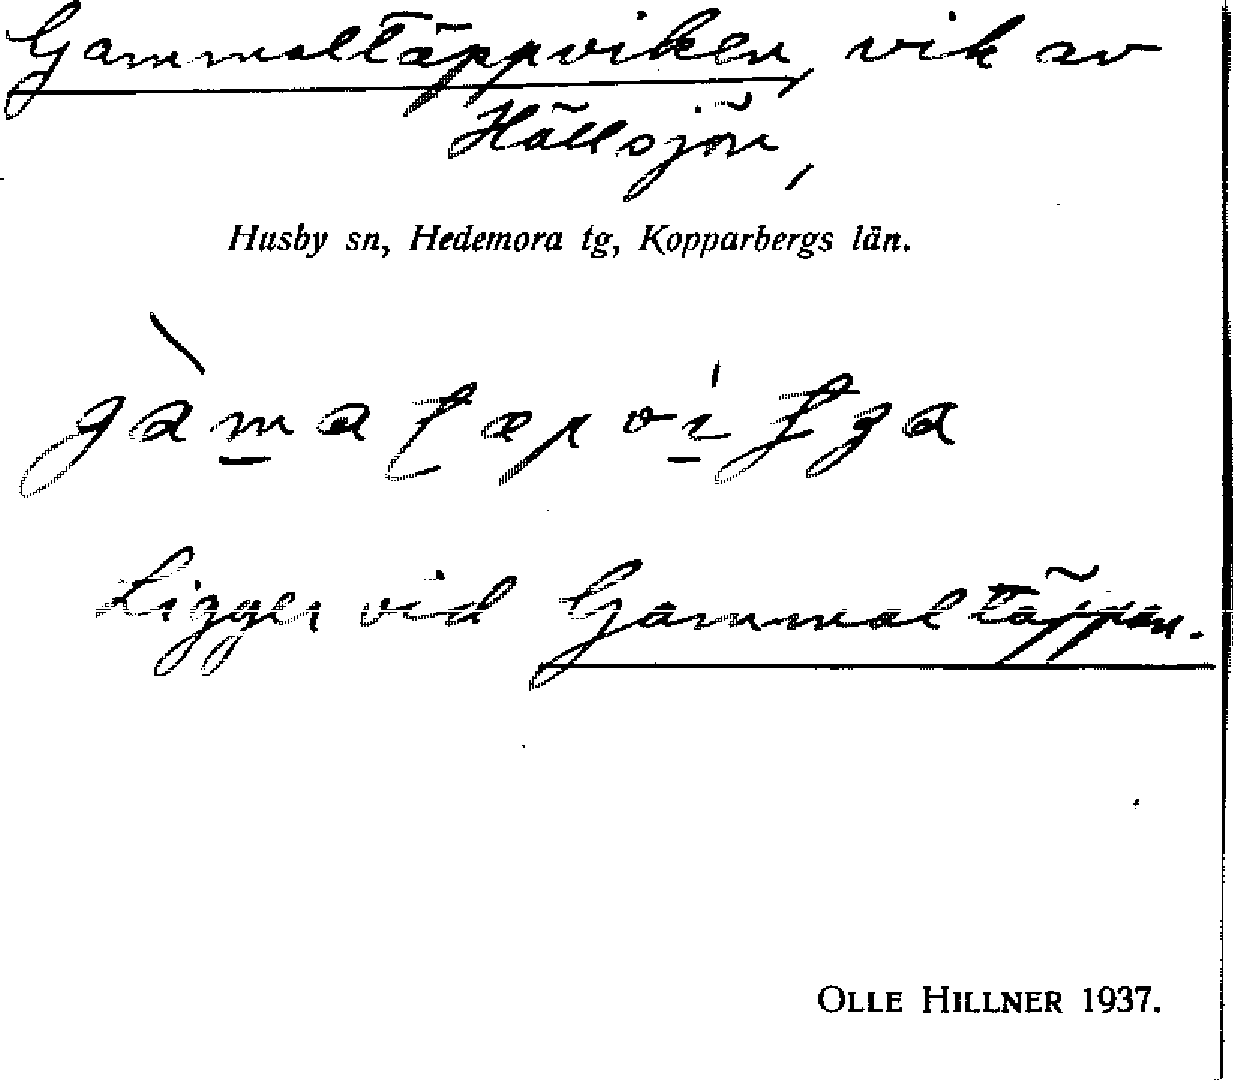 Gammaltäppviken, vik av
Hällsjön,
Husby sn, Hedemora tg, Kopparbergs län.
Ligger vid Gammaltäppan.
OLLE HILLNER 1937.